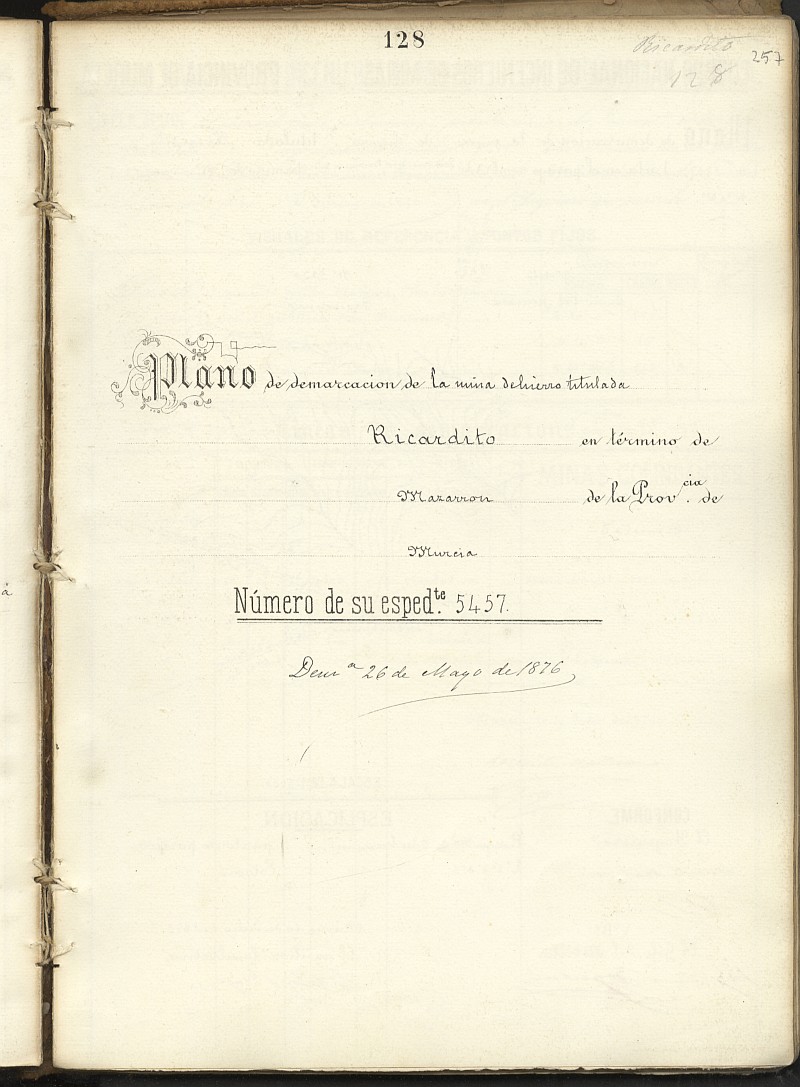 128
Ricardito
257
128
Plano de demarcacion de la mina de hierro titulada
Ricardito en término de
Mazarron de la Prov.cia de
Murcia
Número de su esped.te 5457.
Dem.n 26 de Mayo de 1876
á